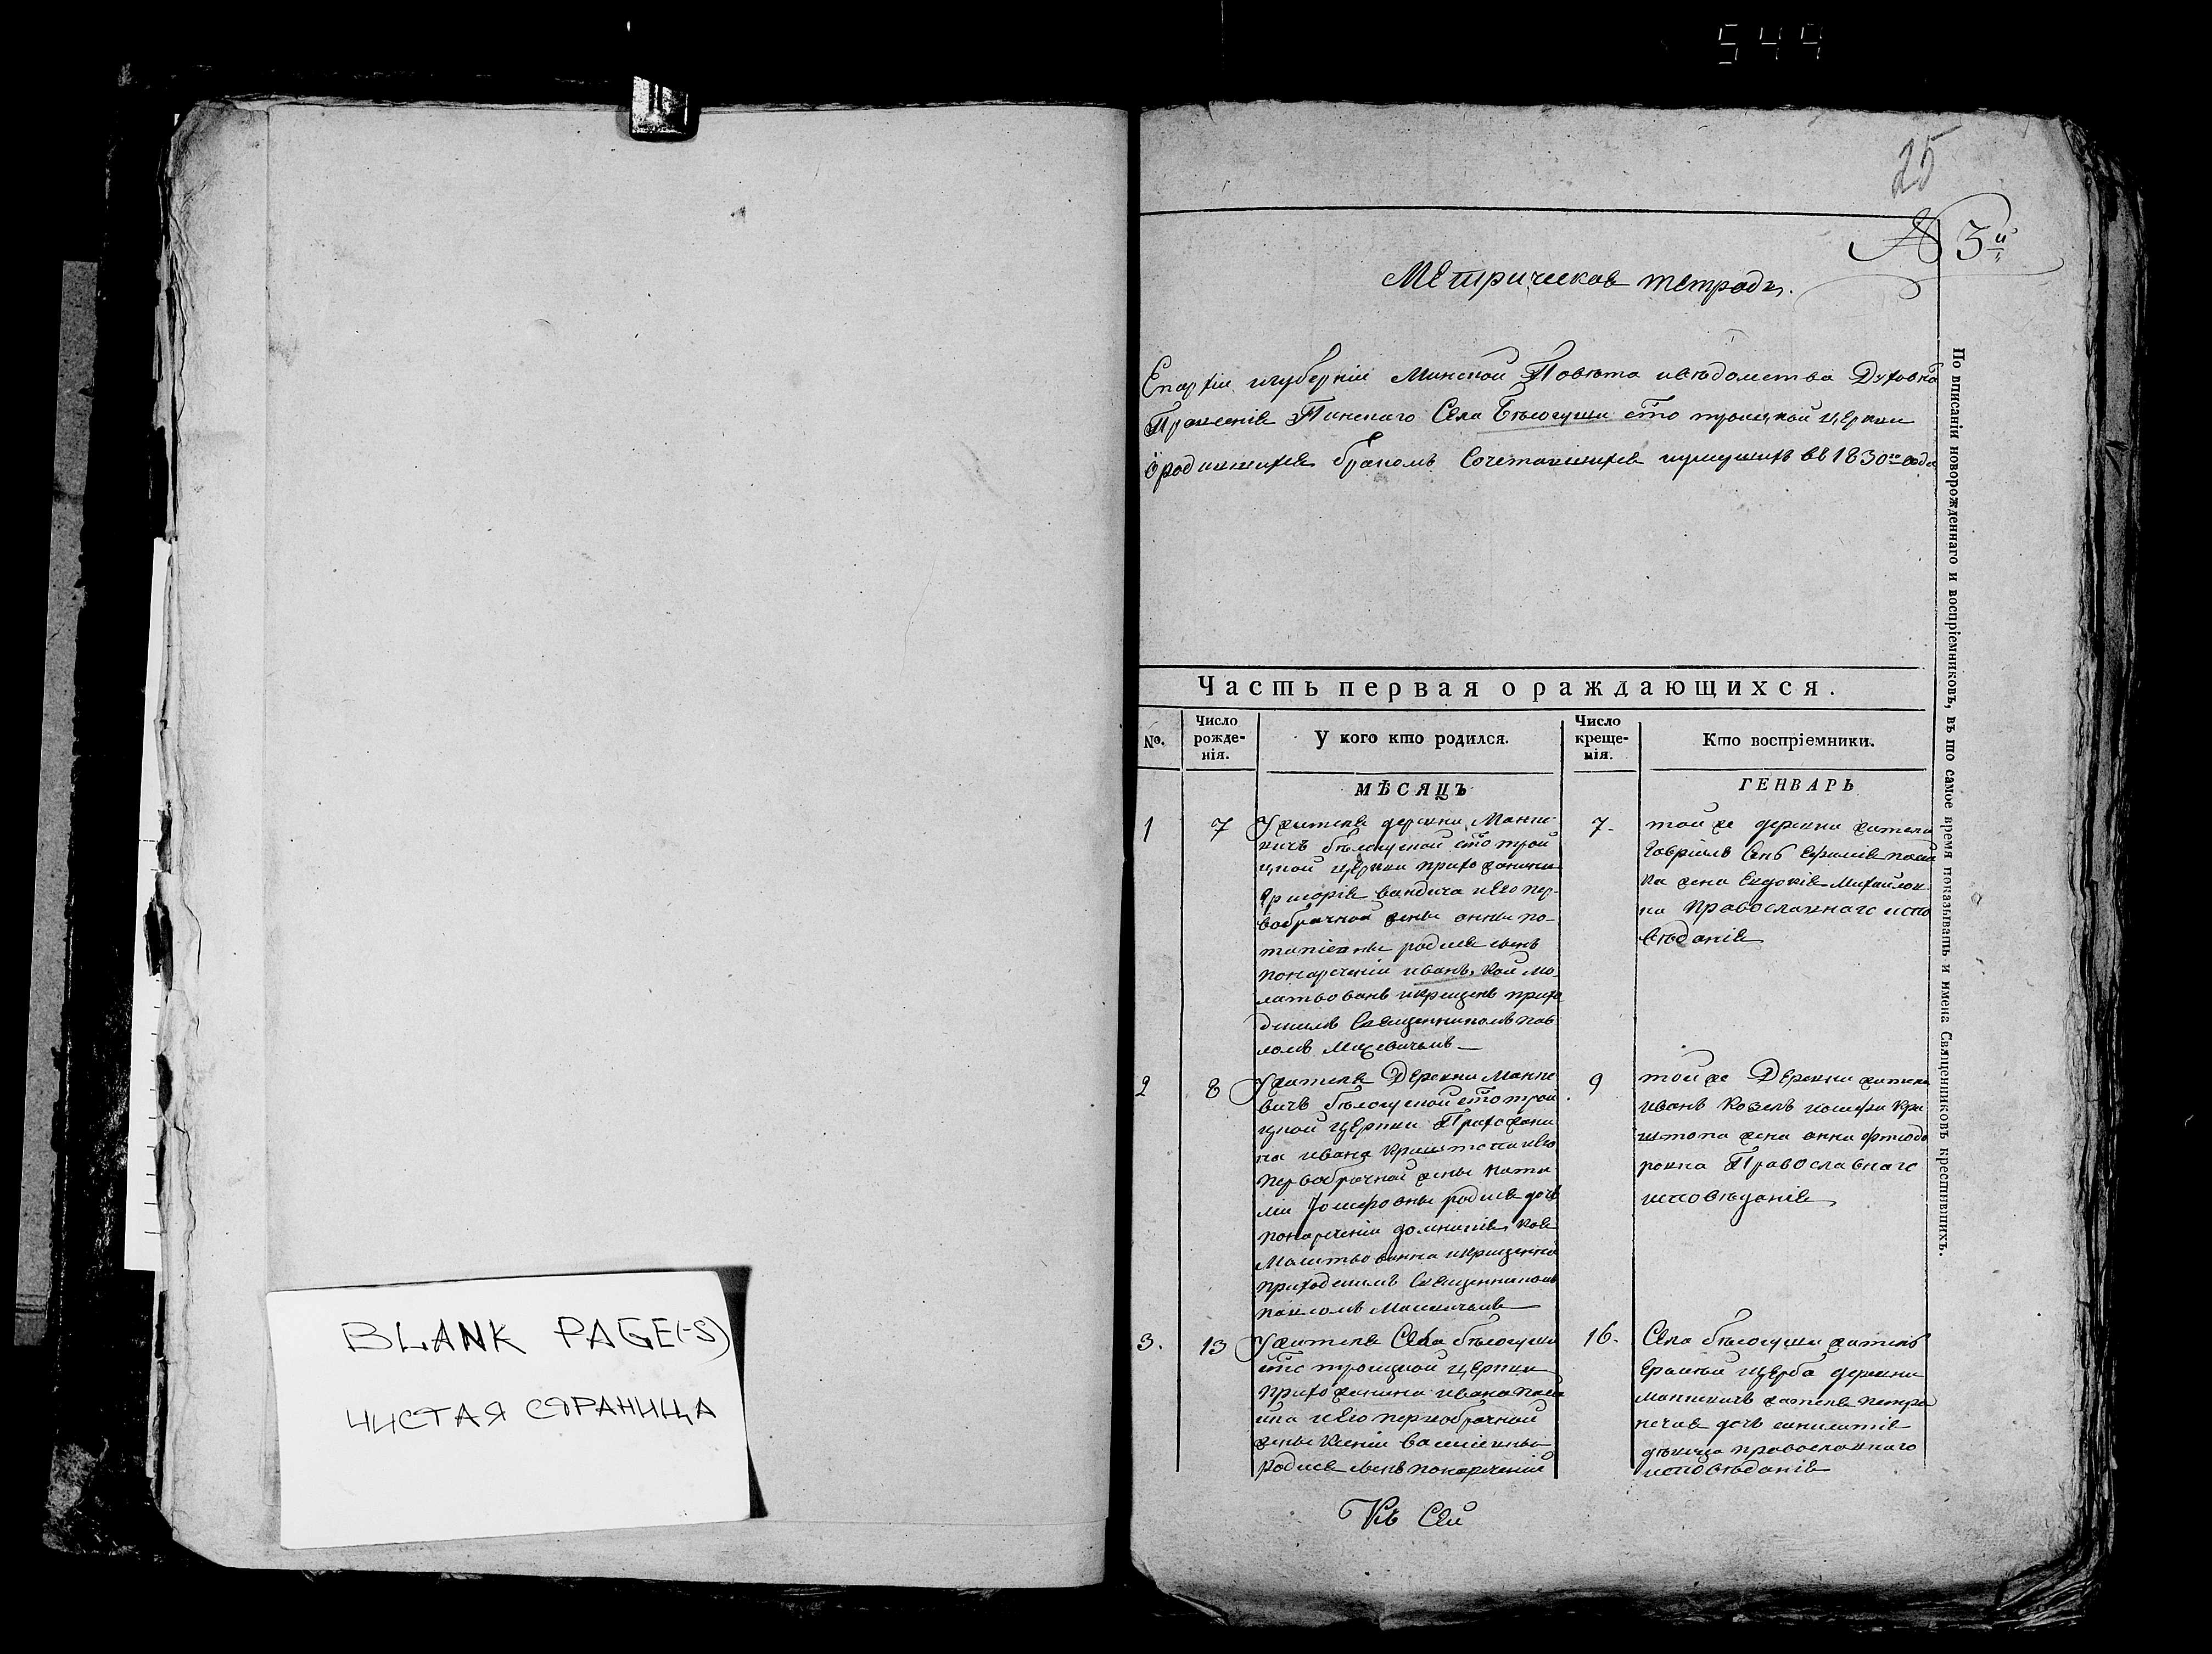 544
25
№ 3й
Метрическая тетрадь.
Епархіи игуберніи Минской Повѣта ивѣдомства Духовна
Правленія Пинскаго Села Бѣлогуши сто троицкой церкви
ородившихся бракомъ Сочетавшихся иумершихъ въ 1830мъ годѣ
По вписаніи новорожденнаго и воспріемниковъ, въ то самое время показывать и имена Священниковъ крестившихъ.
Часть первая о раждающихся.
№. Число рожде- нія. У кого кто родился. Число креще- нія. Кто воспріемники.
МѢСЯЦЪ ГЕНВАРЬ
1 7 7.
Ужителя деревни
бѣлогуской сто трои
цкой церкви прихожанина
Григорія вандича иего пер-
вобрачной жены анны по-
тапіевны родился сынъ
понареченіи иванъ, кой мо-
латвованъ икрещенъ прихо
дскимъ Священникомъ пав
ломъ
той же деревни жители
Гавріилъ
жена Евдокія Михайлов-
на Православнаго испо
вѣданія
2 8 9
Ужителя Деревни
вичъ бѣлогуской сто трои
цкой церкви Прихожани
на ивана иего
первобрачной жены
Іосифовны родился дочь
понареченіи домникія, коя
Молитвованна икрещенна
приходскимъ Священникомъ
павломъ
той же Деревни жители
иванъ Козелъ иосифа
жена анна
ровна Православнаго
исповѣданія
3. 13 16.
Ужителя Села бѣлогуши
сто троицкой церкви
прихожанина ивана
иего первобрачной
жены Ксеніи Василіевны
родился сынъ понареченіи
Села бѣлогуши житель
щерба деревни
жителя
дочь
дѣвица православнаго
исповѣданія
Къ Сей
BLANK PAGE(-S)
ЧИСТАЯ СТРАНИЦА